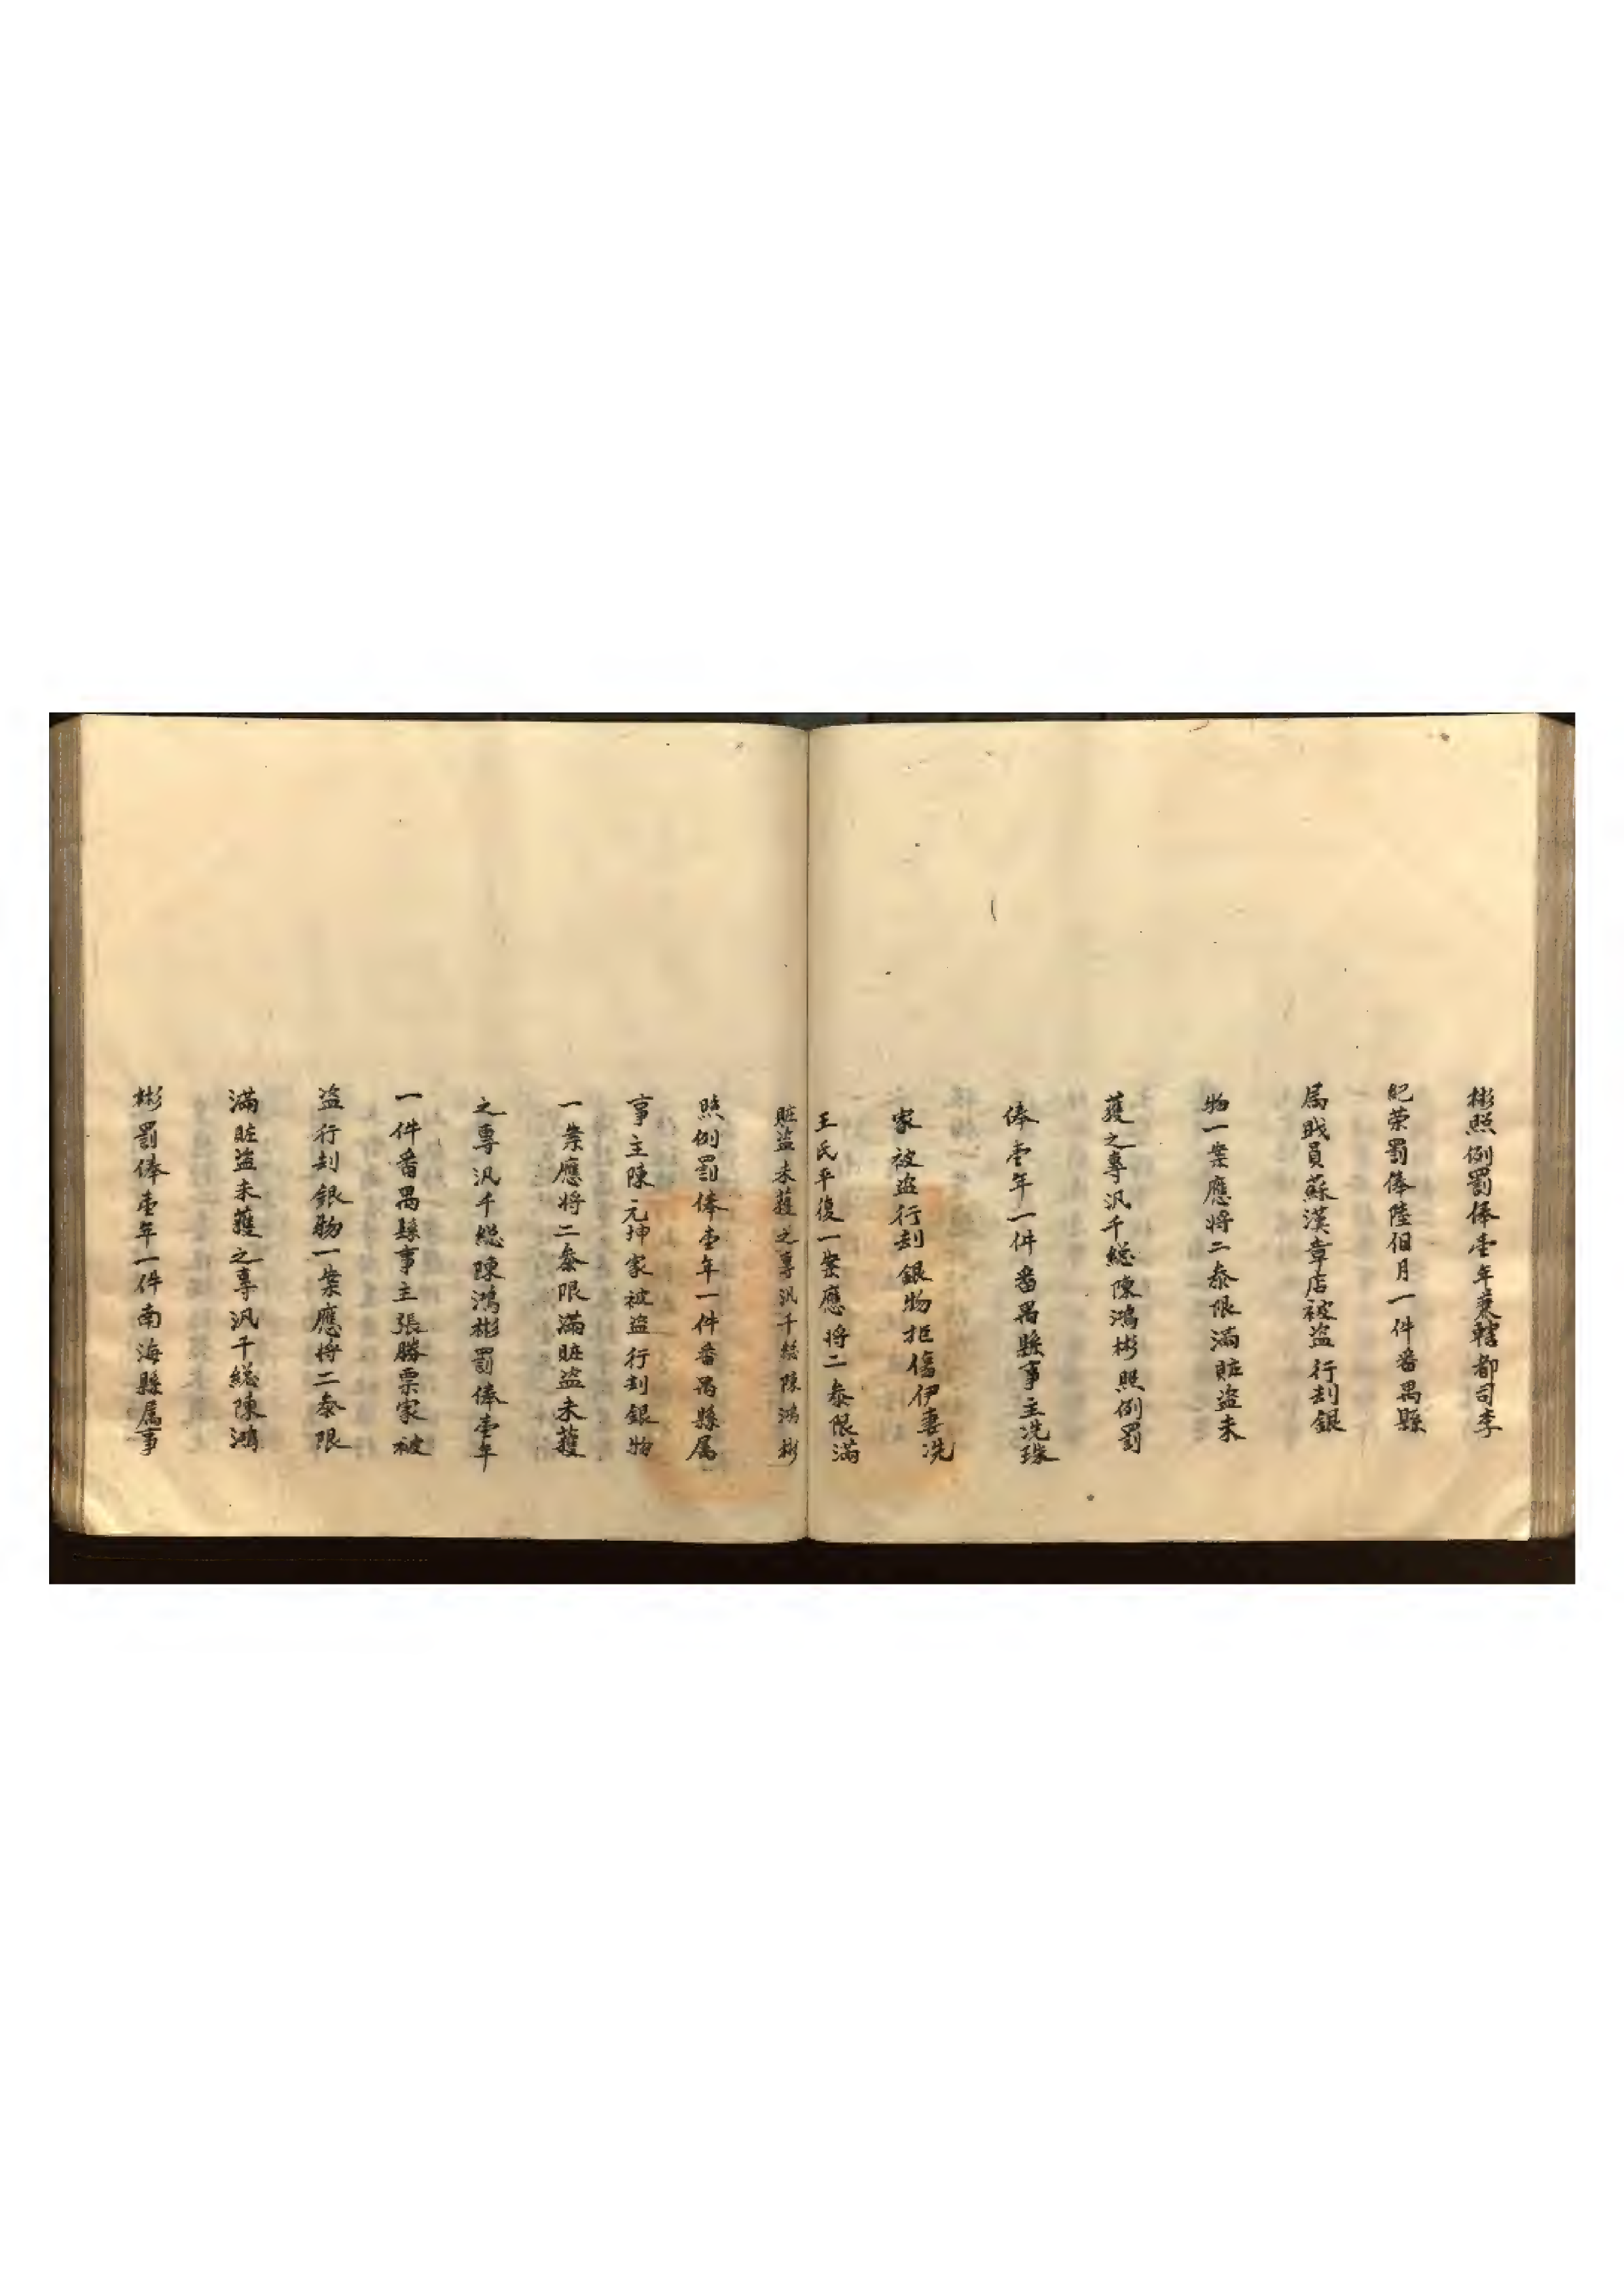 彬照例罰俸壹年兼轄都司李
紀荣罰俸陸個月一件畨禺縣
属戝員蘇漢章店被盗行刦銀
物一案應将二叅限滿賍盗未
獲之專汛千総陳鴻彬照例罰
俸壹年一件畨禺縣事主冼珠
家被盗行刦銀物拒傷伊妻冼
王氏平復一案應将二叅限滿
賍盗未獲之專汛千総陳鴻彬
照例罰俸壹年一件畨禺縣属
事主陳元坤家被盗行刦銀物
一案應将二叅限滿賍盗未獲
之專汛千総陳鴻彬罰俸壹年
一件畨禺縣事主張勝票家被
盗行刦銀物一案應将二叅限
滿賍盗未獲之專汛千総陳鴻
彬罰俸壹年一件南海縣属事